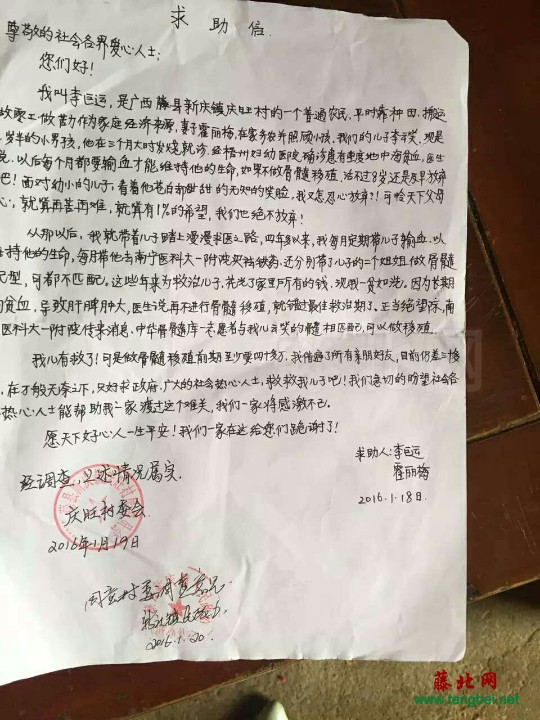 求助信
尊敬的社会各界爱心人士:
您们好!
我叫李巨运,是广西藤县新庆镇庆旺村的一个普通农民,平时靠种田、搬运
故零工做勤作为家庭经济来源,妻子霍丽梅,在家务农并照顾小孩。我们的儿子李云笑,现是
岁半的小男孩,他在3个月大时发烧就诊,经梧州妇幼医院确诊患有重度地中海贫血,医生
说,以后每个月都要输血才能维持他的生命,如果不做骨髓移植,活不过8岁还是及早放弃
吧!面对幼小的儿子,看着他苍白却甜甜的无知的笑脸,我又怎忍心放弃?!可怜天下父母
心,就算再苦再难,就算有1%的希望,我们也绝不放弃!
从那以后,我就带着儿子踏上漫漫求医之路,四年多以来,我每月定期带儿子输血,以
维持他的生命,每月带他去南宁医科大一附院买祛铁药,还分别带了儿子的二个姐姐做骨髓
配型,可都不匹配。这些年来为救治儿子,花光了家里所有的钱,现我一贫如洗。因为长期
的贫血,导致肝脾肿大,医生说再不进行骨髓移植,就错过最佳救治期了。正当绝望际,南
医科大一附院传来消息,中华骨髓库一志愿者与我儿云笑的髓相匹配,可以做移植。
我儿有救了!可是做骨髓移植前期至少要四十多万,我借遍了所有亲朋好友,目前仍差
,在万般无奈之下,只好求政府、广大的社会热心人士,救救我儿子吧!我们急切的盼望社会各
热心人士能帮助我一家渡过这个难关,我们一家将感激不已。
愿天下好心人一生平安!我们一家在这给您们跪谢了!
求助人:李巨运
霍丽梅
2016.1.18日.
经调查,上述情况属实.
庆旺村委会
2016年1月19日
同意村委调查意见.
2016.1.20.
藤北网
www.tengbei.net